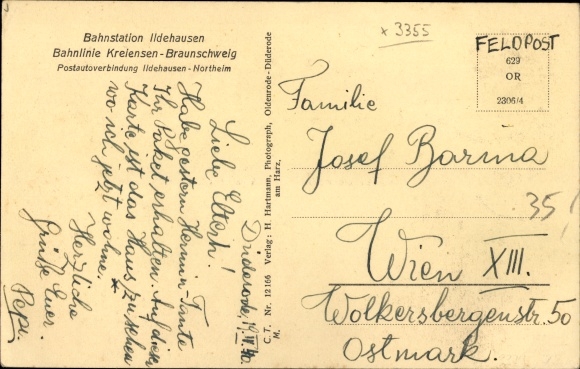 Bahnstation Ildehausen
Bahnlinie Kreiensen - Braunschweig
Postautoverbindung Ildehausen - Northeim
Düderode,
Liebe Eltern!
Habe gestern Hermin-Tante
Ihr Paket erhalten. Auf dieser
Karte ist das Haus zu sehen
wo ich jetzt wohne. *
Herzliche
Grüße Euer
Pepi.
C. T. Nr. 12166 Verlag: H. Hartmann, Photograph, Oldenrode-Düderode
M. am Harz.
x 3355
FELDPOST
629
OR
2306/4
Familie
Josef Barina
35
Wien XIII.
Wolkersbergenstr. 50
Ostmark.